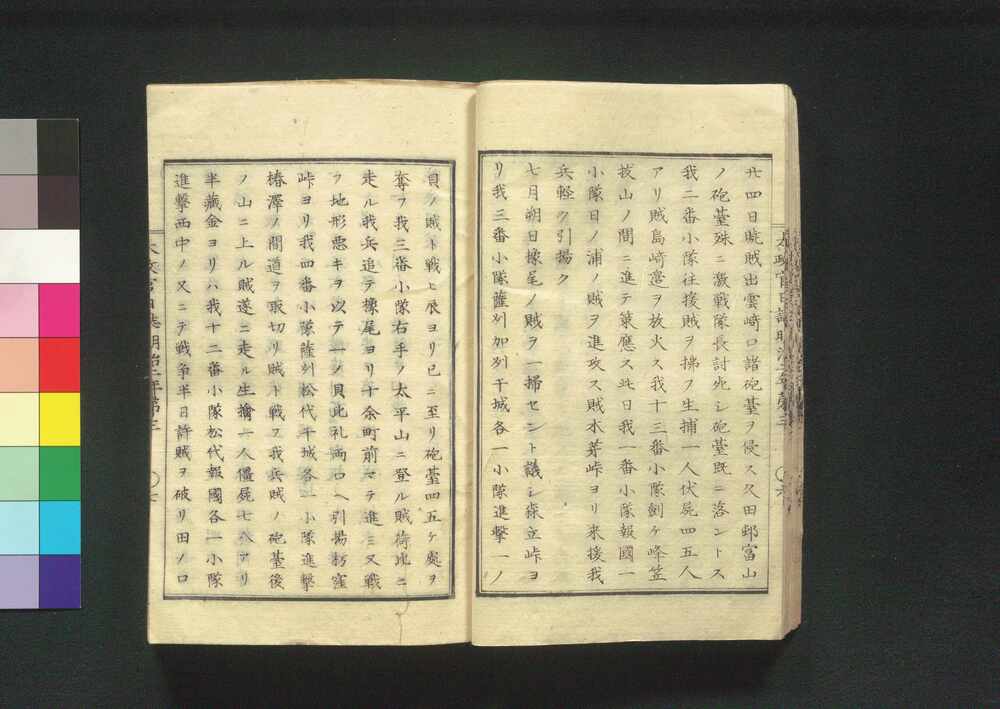 廿四日暁賊出雲崎口諸砲䑓ヲ侵ス久田邨冨山
ノ砲䑓殊ニ激戦隊長討死シ砲䑓既ニ落ントス
我二番小隊往援賊ヲ拂フ生捕一人伏屍四五人
アリ賊島崎邉ヲ放火ス我十三番小隊劔ケ峰笠
抜山ノ間ニ進テ策應ス此日我一番小隊報國一
小隊日ノ浦ノ賊ヲ進攻ス賊木芽峠ヨリ来援我
兵軽ク引揚ク
七月朔日椽尾ノ賊ヲ一掃セント議シ森立峠ヨ
リ我三番小隊薩州加州干城各一小隊進撃一ノ
貝ノ賊ト戦ヒ辰ヨリ巳ニ至リ砲䑓四五ケ處ヲ
奪フ我三番小隊右手ノ太平山ニ登ル賊荷此ニ
走ル我兵追テ椽尾ヨリ十余町前マテ進ミ又戦
フ地形悪キヲ以テ一ノ貝此礼両口ヘ引揚朽窪
峠ヨリ我四番小隊薩州松代干城各一小隊進撃
椿澤ノ間道ヲ取切リ賊ト戦フ我兵賊ノ砲䑓後
ノ山ニ上ル賊遂ニ走ル生擒一人僵屍七八アリ
半藏金ヨリハ我十二番小隊松代報國各一小隊
進撃西中ノ又ニテ戦争半日許賊ヲ破リ田ノ口
太政官日誌明治二年第三